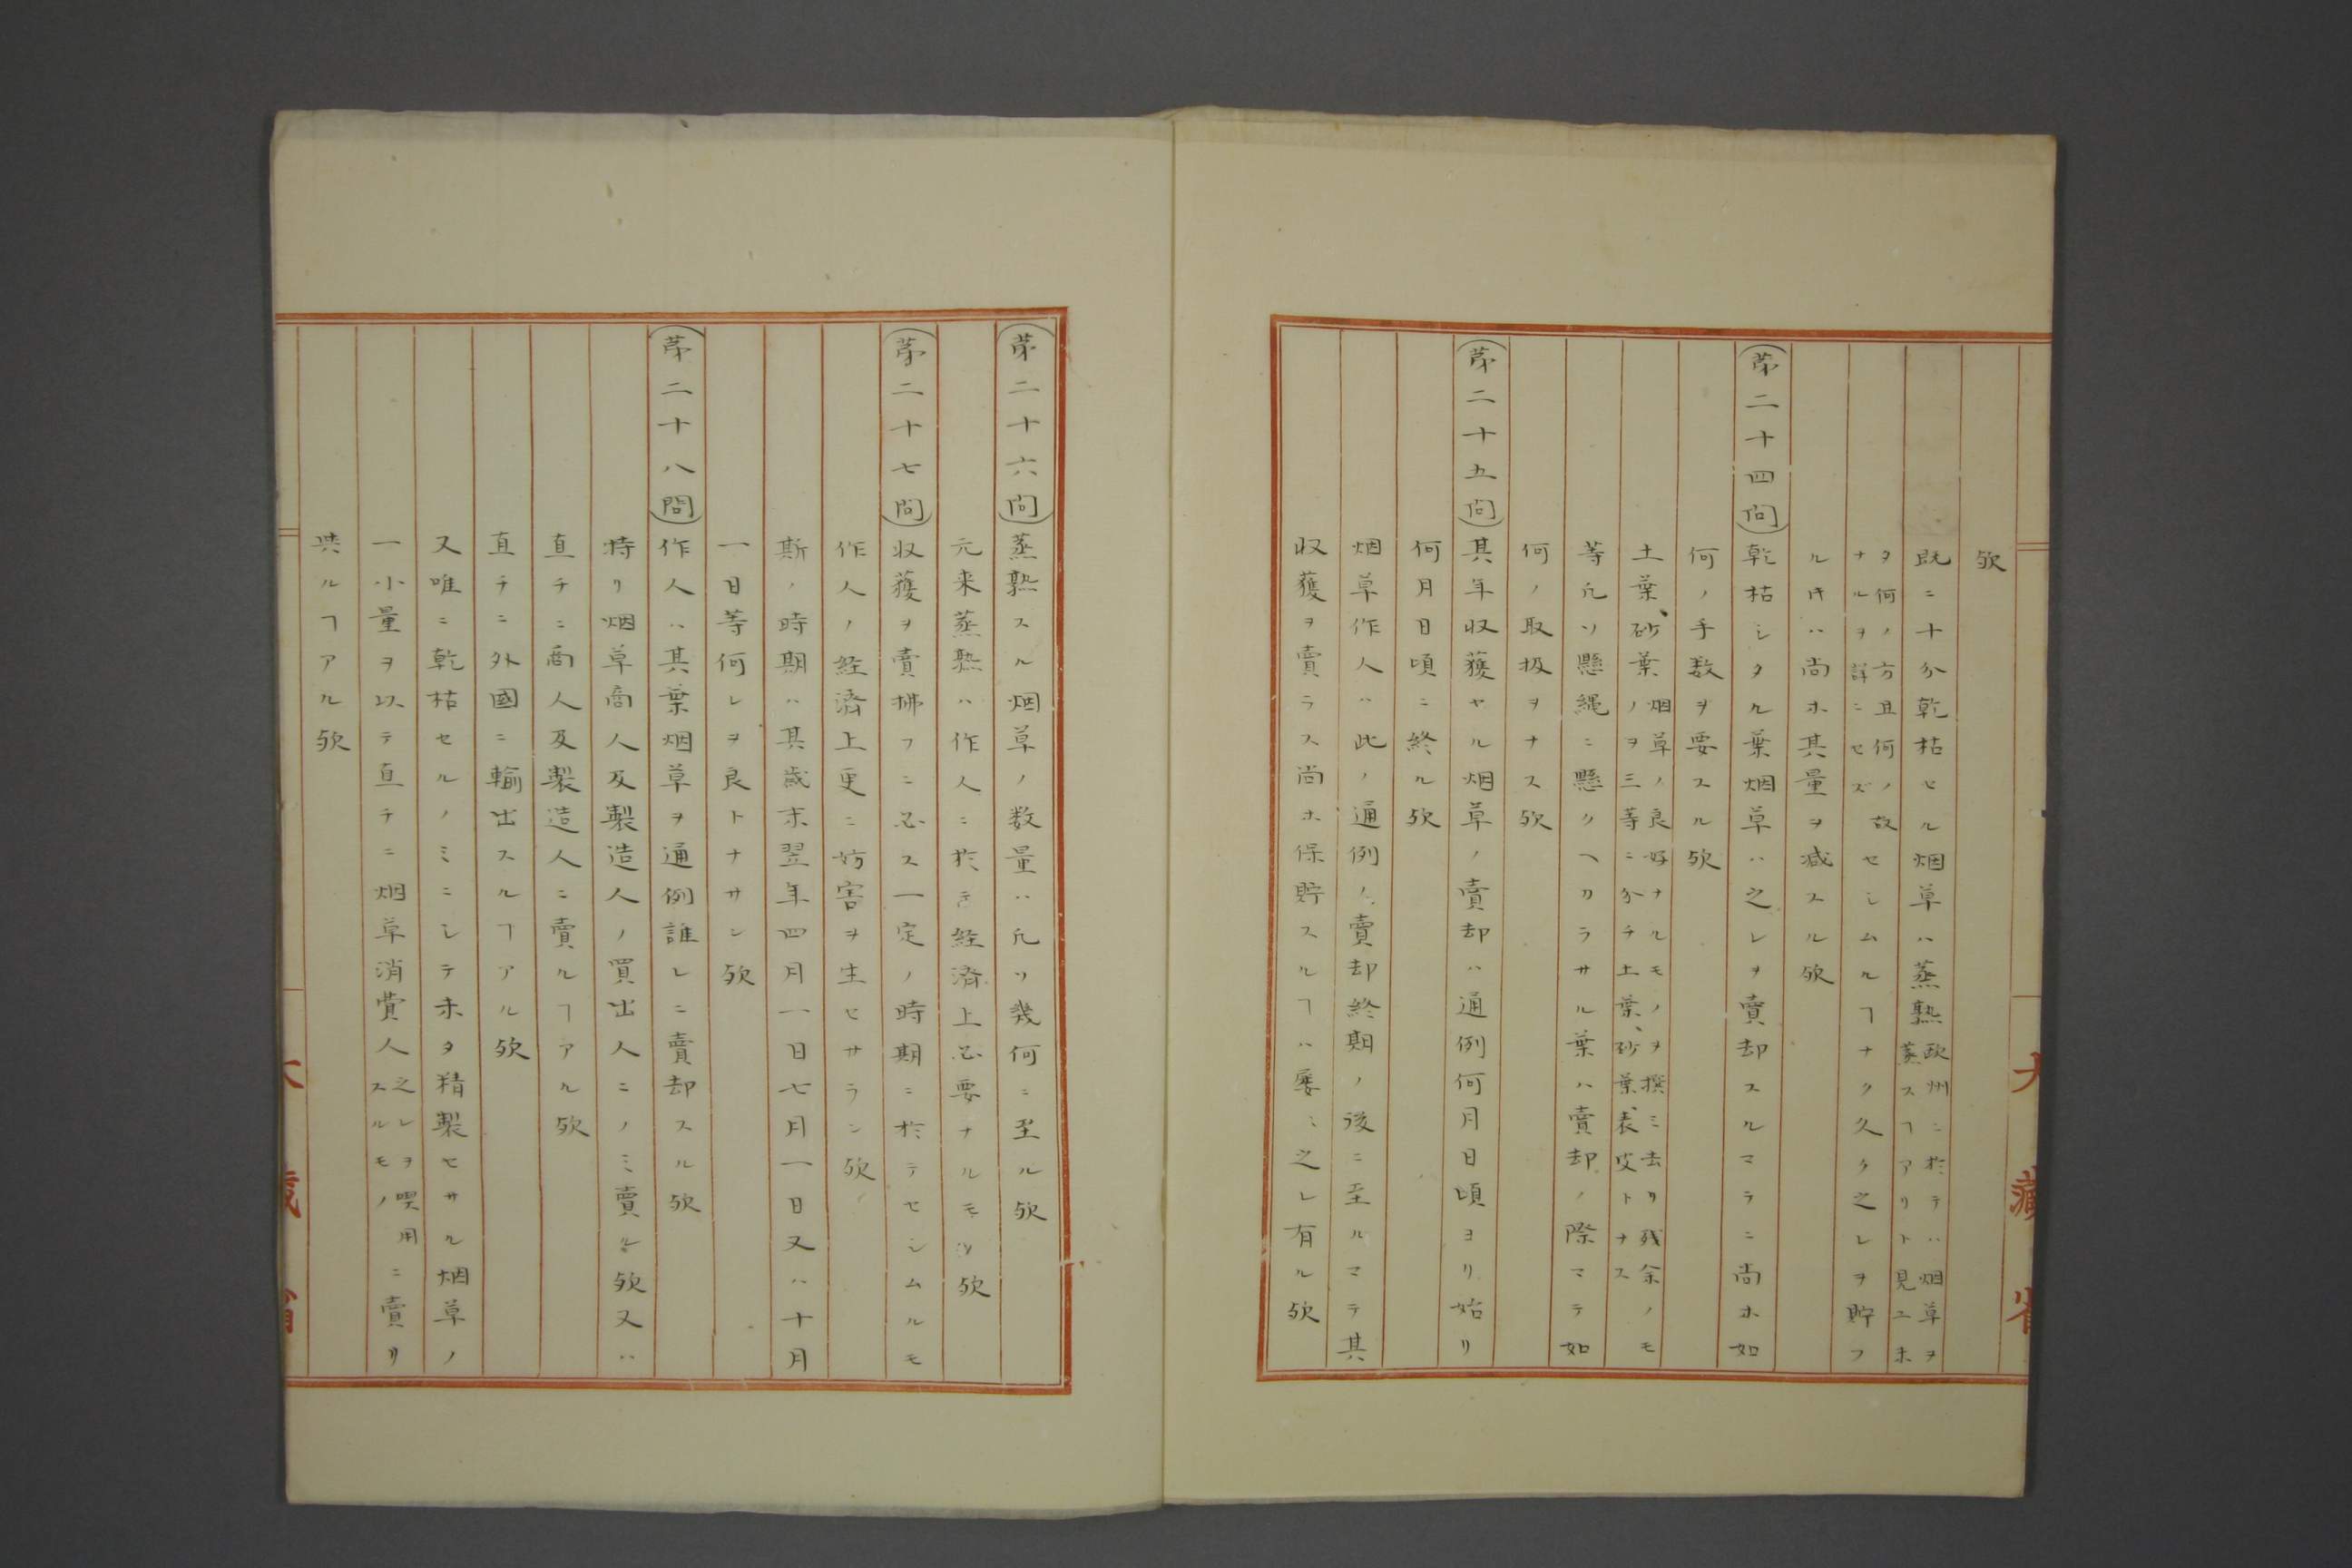 歟
既ニ十分乾枯セル烟草ハ蒸熟欧州ニ於テハ烟草ヲ蒸スヿアリト見エホ
タ何ノ方且何ノ故ナルヲ詳ニセズセシムルヿナク久ク之レヲ貯フ
ル片ハ尚ホ其量ヲ减スル歟
第二十四問
乾枯シタル葉烟草ハ之レヲ賣却スルマラニ尚ホ如
何ノ手数ヲ要スル歟
土葉、砂葉烟草ノ良好ナルモノヲ撰ミ去リ残余ノモノヲ三等ニ分チ土葉、砂葉、表皮トナス
等凡ソ懸縄ニ懸クヘカラサル葉ハ賣却ノ際マテ如
何ノ取扱ヲナス歟
第二十五問
其年収獲セル烟草ノ賣却ハ通例何月日頃ヨリ始リ
何月日頃ニ終ル歟
烟草作人ハ此ノ通例ノ賣却終期ノ後ニ至ルマテ其
収獲ヲ賣ラス尚ホ保貯スルヿハ屡ミ之レ有ル歟
大藏省
第二十六問
蒸熟スル烟草ノ数量ハ凡ソ幾何ニ至ル歟
元来蒸熟ハ作人ニ於テ経済上必要ナルモノ歟
第二十七問
収獲ヲ賣拂フニ必ス一定ノ時期ニ於テセシムルモ
作人ノ経済上更ニ妨害ヲ生セサラン歟
斯ノ時期ハ其歳末翌年四月一日七月一日又ハ十月
一日等何レヲ良トナサン歟
第二十八問
作人ハ其葉烟草ヲ通例誰レニ賣却スル歟
特リ烟草商人及製造人ノ買出人ニノミ賣ル歟又ハ
直チニ商人及製造人ニ賣ルヿアル歟
直チニ外國ニ輸出スルヿアル歟
又唯ニ乾枯セルノミニシテ未タ精製セサル烟草ノ
一小量ヲ以テ直チニ烟草消費人之レヲ喫用スルモノニ賣リ
與ルヿアル歟